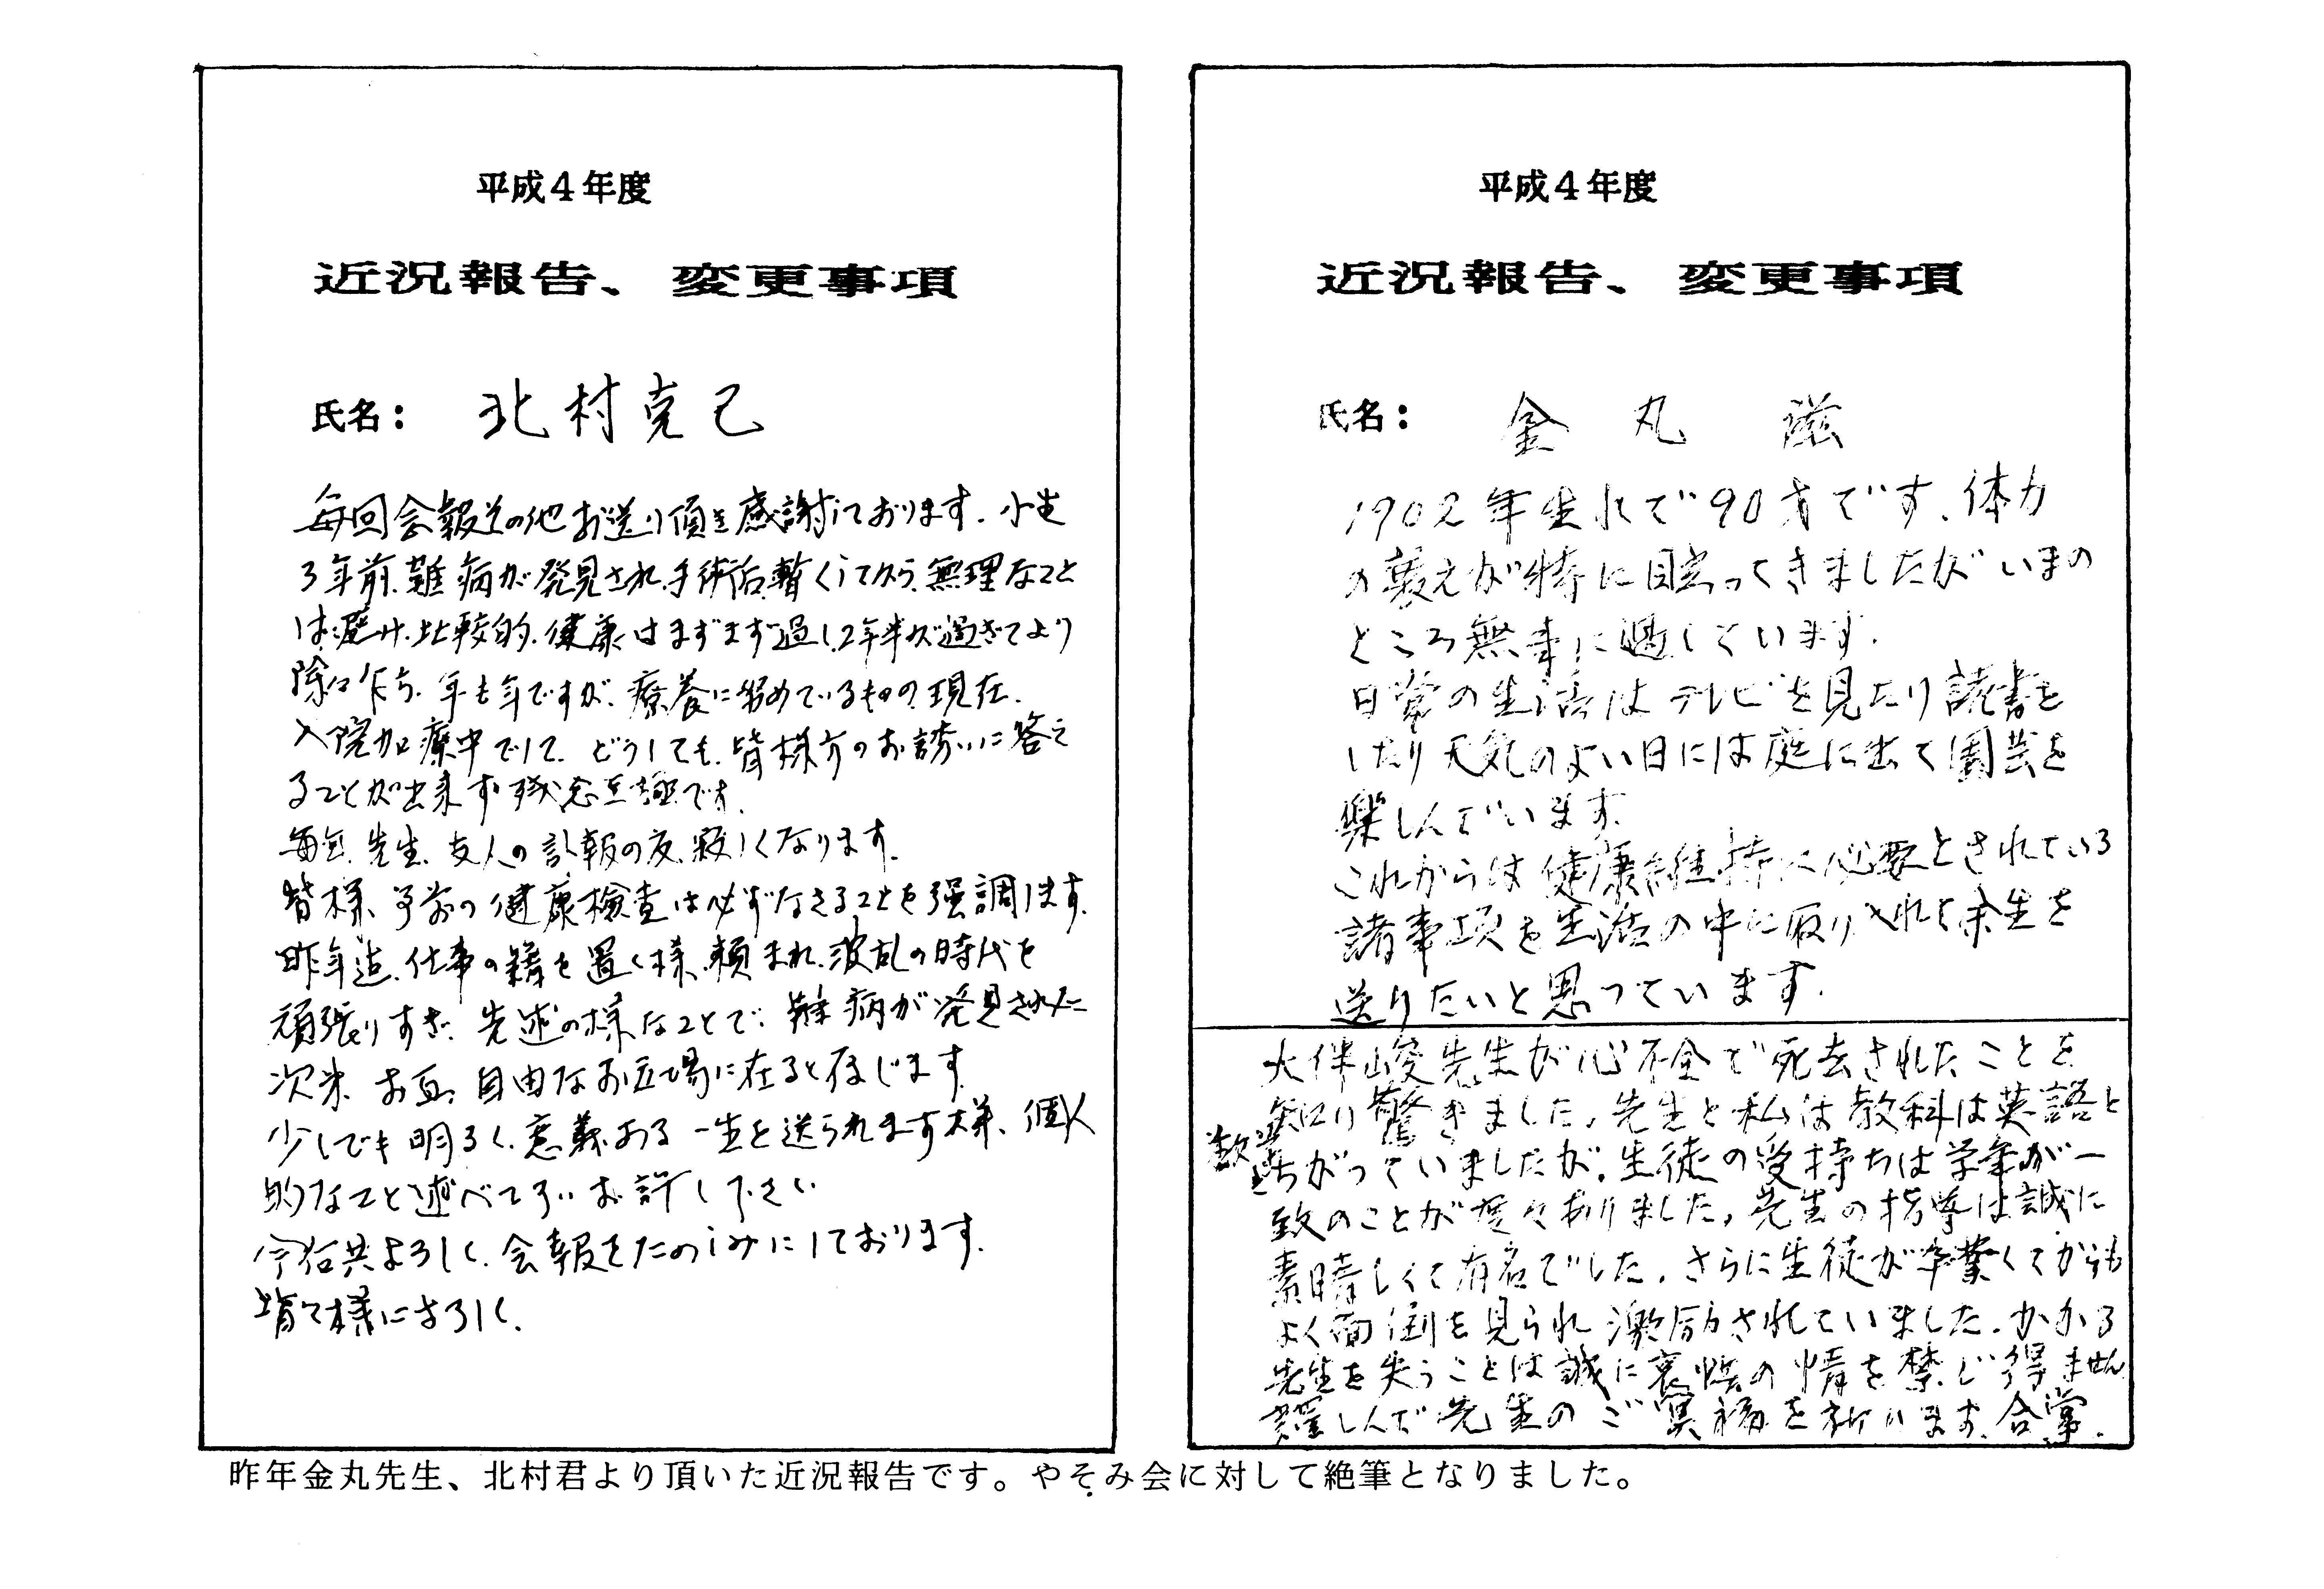 平成4年度
近況報告、変更事項
氏名： 北村克己
毎回会報その他お送り頂き感謝しております．小生
3年前、難病が発見され、手術后、暫くしてから、無理なこと
は避け、比較的、健康はまずまず過し、2年半が過ぎてより
除々乍ら、年も年ですが、療養に努めているものの、現在、
入院加療中でして、どうしても、皆様方のお誘いに答え
ることが出来ず残念至極です．
毎年、先生、友人の訃報の度、寂しくなります．
皆様、予前の健康検査は必ずなさることを強調します．
昨年迄、仕事の籍を置く様、頼まれ、波乱の時代を
頑張りすぎ、先述の様なことで、難病が発見された
次第、お互、自由なお立場に在ると存じます．
少しでも明るく、意義ある一生を送られます様、個人
的なこと述べて お許し下さい
今后共よろしく、会報をたのしみにしております．
皆々様によろしく．
平成4年度
近況報告、変更事項
氏名： 金丸 滋
1902年生れで90才です．体力
の衰えが特に目立ってきましたがいまの
ところ無事に過しています．
日常の生活はテレビを見たり読書を
したり天気のよい日には庭に出て園芸を
楽しんでいます．
これからは健康維持に必要とされている
諸事項を生活の中に取り入れて余生を
送りたいと思っています．
大伴峻先生が心不全で死去されたことを
知り驚きました．先生と私は教科は英語と
数学
ちがっていましたが．生徒の受持ちは学年が一
致のことが度々ありました．先生の指導は誠に
素晴しくて有名でした．さらに生徒が卒業してからも
よく面倒を見られ激励されていました．かかる
先生を失うことは誠に哀惜の情を禁じ得ません
謹しんで先生のご冥福を祈ります．合掌．
昨年金丸先生、北村君より頂いた近況報告です。やそみ会に対して絶筆となりました。